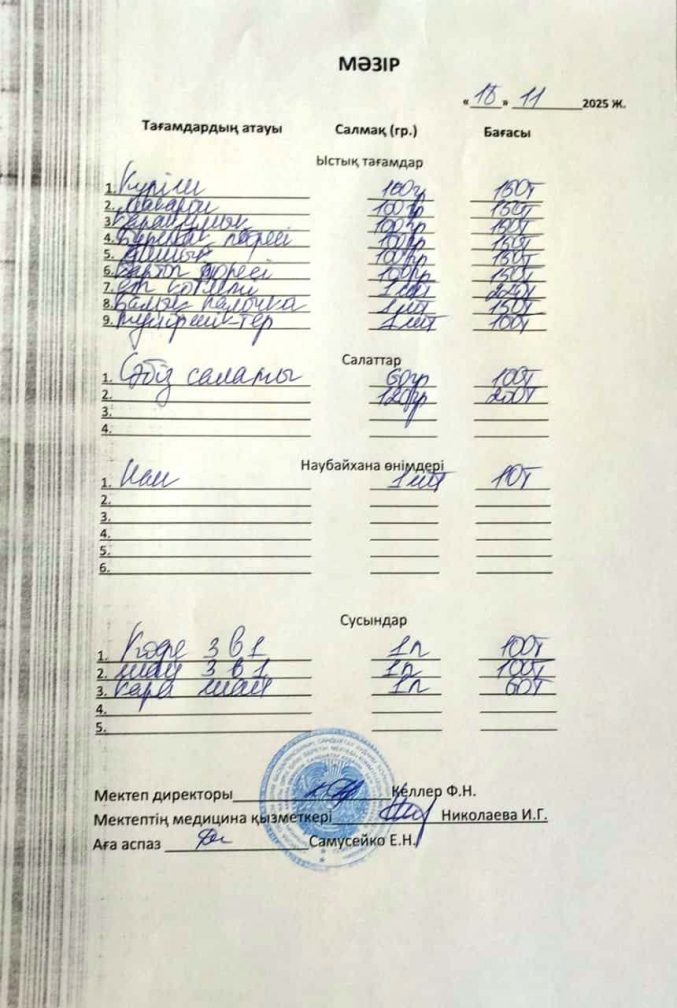 МӘЗІР
«15» 11 2025 Ж.
Тағамдардың атауы Салмақ (гр.) Бағасы
Ыстық тағамдар
1. Күріш 100гр 150т
2. Макарон 100гр 150т
3. Қарақұмық 100гр 150т
4. Бұршақ пюресі 100гр 150т
5. 100гр 150т
6. Картоп пюресі 100гр 150т
7. ет котлеті 1 шт 200т
8. Балық палочка 1 шт 150т
9. 1 шт 100т
Салаттар
1. Сәбіз салаты 60гр 100т
2. 120гр 200т
3.
4.
Наубайхана өнімдері
1. Нан 1 шт 10т
2.
3.
4.
5.
6.
Сусындар
1. Кофе 3 в 1 1п 100т
2. шай 3 в 1 1п 100т
3. қара шай 1п 60т
4.
5.
Мектеп директоры Келлер Ф.Н.
Мектептің медицина қызметкері Николаева И.Г.
Аға аспаз Самусейко Е.Н.